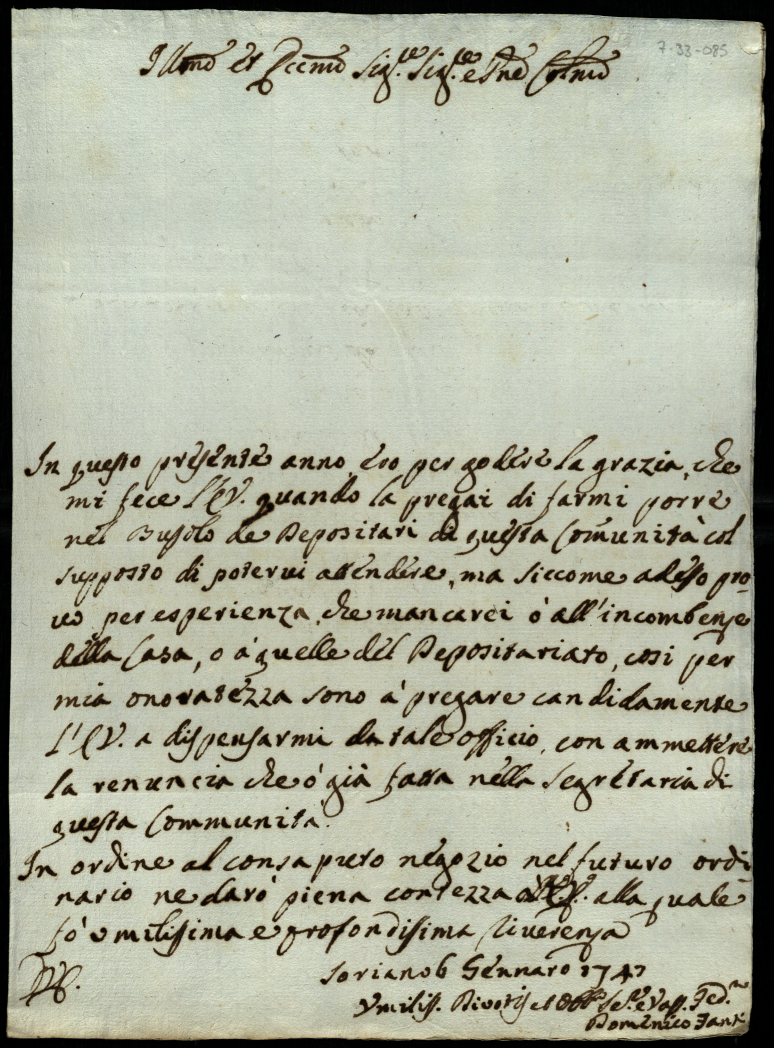 7-33-085
Illmo et Eccmo Sig.re Sig.re e Pne Colmo
In questo presente anno ero per godere la grazia, che
mi fece l'E.V. quando la pregai di farmi porre
nel Busolo de Depositari di questa Comunità col
supposto di potervi attendere, ma siccome adesso pro-
vo per esperienza, che mancarei ò all'incombenze
della Casa, o à quelle del Depositariato, così per
mia onoratezza sono à pregare candidamente
l'E.V. a dispensarmi da tale officio, con ammettere
la renuncia che ò già fatta nella Segretaria di
questa Communità.
In ordine al consaputo negozio nel futuro ordi-
nario ne darò piena contezza all'E.V. alla quale
fò umilissima e profondissima riverenza
Soriano 6 Gennaro 1747
Umiliss. Divotis et Obb. Se.e e Vass. Fed.
Domenico Fanti